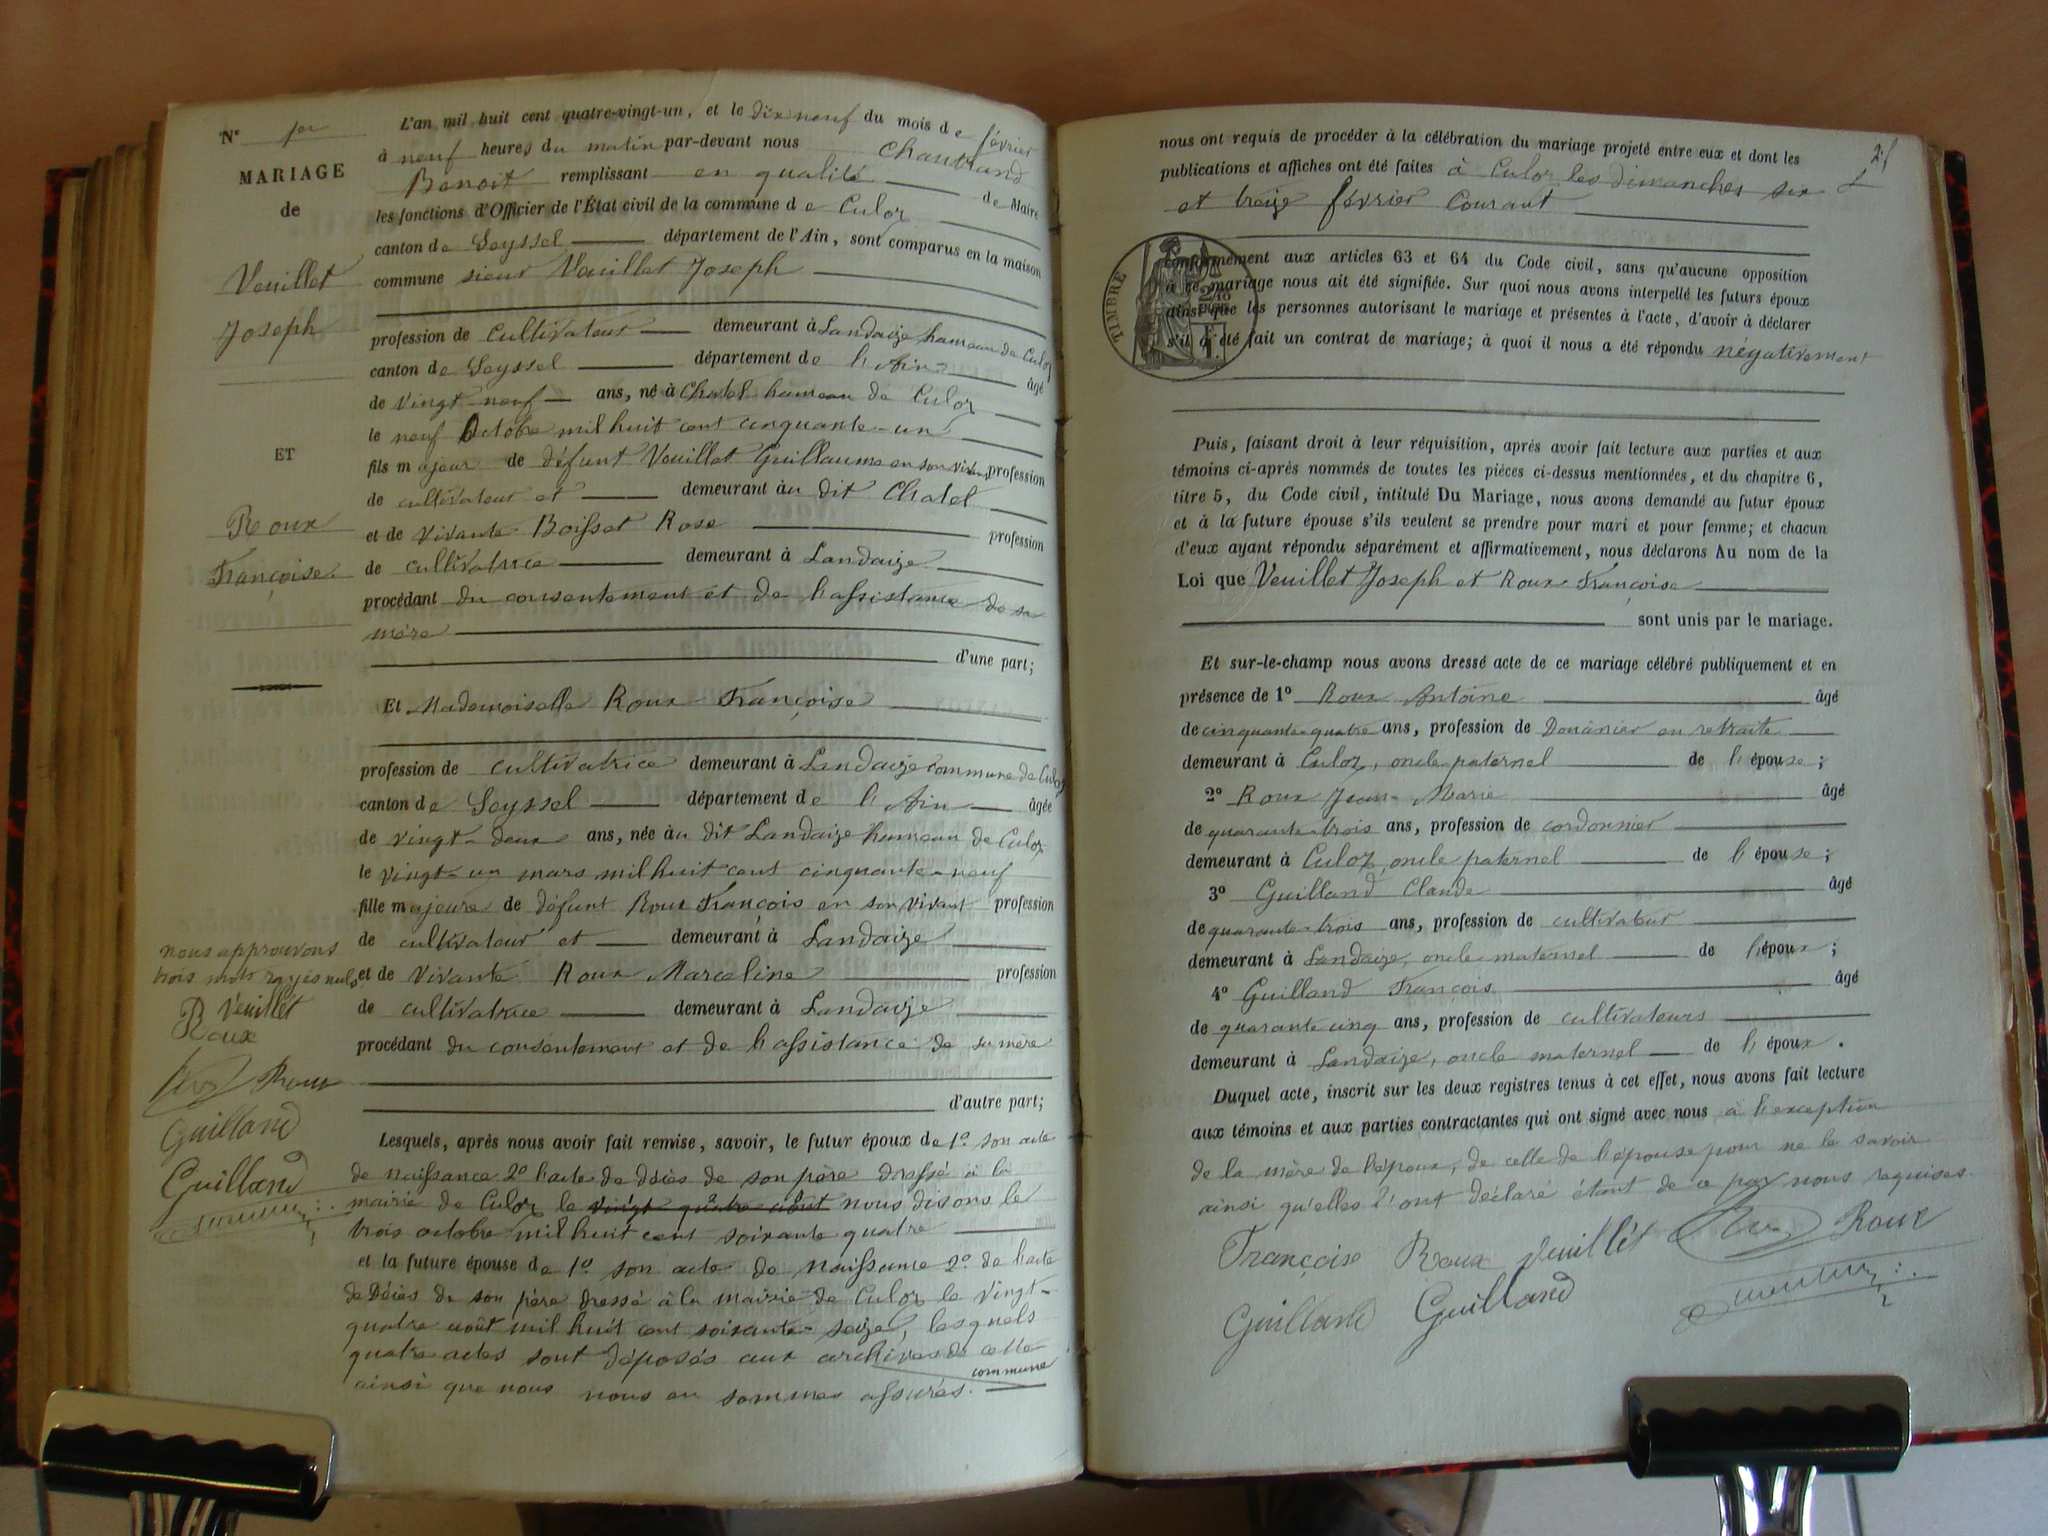 N° 1er
MARIAGE
de
Veuillet
Joseph
ET
Roux
Françoise
nous approuvons
trois mots rayés nuls
Veuillet
Roux
Roux
Guilland
Guilland
L'an mil huit cent quatre-vingt-un, et le dix neuf du mois de février
à neuf heures du matin par-devant nous Chautrand
Benoit remplissant en qualité de Maire
les fonctions d'Officier de l'État civil de la commune de Culoz
canton de Seyssel département de l'Ain, sont comparus en la maison
commune sieur Veuillet Joseph
profession de cultivateur demeurant à Landaize hameau de Culoz
canton de Seyssel département de l'Ain âgé
de vingt-neuf ans, né à Chatel hameau de Culoz
le neuf Octobre mil huit cent cinquante-un
fils majeur de défunt Veuillet Guillaume en son vivant profession
de cultivateur et demeurant àu dit Chatel
et de vivante Boisset Rose profession
de cultivatrice demeurant à Landaize
procédant du consentement et de l'assistance de sa
mère
d'une part;
Et Mademoiselle Roux Françoise
profession de cultivatrice demeurant à Landaize commune de Culoz
canton de Seyssel département de l'Ain âgée
de vingt-deux ans, née àu dit Landaize hameau de Culoz
le vingt-un mars mil huit cent cinquante-neuf
fille majeure de défunt Roux François en son vivant profession
de cultivateur et demeurant à Landaize
et de vivante Roux Marceline profession
de cultivatrice demeurant à Landaize
procédant du consentement et de l'assistance de sa mère
d'autre part;
Lesquels, après nous avoir fait remise, savoir, le futur époux de 1° son acte
de naissance 2° l'acte de décès de son père dressé à la
mairie de Culoz le vingt quatre août nous disons le
trois octobre mil huit cent soixante quatre
et la future épouse de 1° son acte de naissance 2° de l'acte
de Décès de son père dressé à la mairie de Culoz le vingt-
quatre août mil huit cent soixante-seize, lesquels
quatre actes sont déposés aux archives de cette
commune
ainsi que nous nous en sommes assurés.
21
nous ont requis de procéder à la célébration du mariage projeté entre eux et dont les
publications et affiches ont été faites à Culoz les dimanches six
et treize février courant
TIMBRE
conformément aux articles 63 et 64 du Code civil, sans qu'aucune opposition
à ce mariage nous ait été signifiée. Sur quoi nous avons interpellé les futurs époux
ainsi que les personnes autorisant le mariage et présentes à l'acte, d'avoir à déclarer
s'il a été fait un contrat de mariage; à quoi il nous a été répondu négativement
Puis, faisant droit à leur réquisition, après avoir fait lecture aux parties et aux
témoins ci-après nommés de toutes les pièces ci-dessus mentionnées, et du chapitre 6,
titre 5, du Code civil, intitulé Du Mariage, nous avons demandé au futur époux
et à la future épouse s'ils veulent se prendre pour mari et pour femme; et chacun
d'eux ayant répondu séparément et affirmativement, nous déclarons Au nom de la
Loi que Veuillet Joseph et Roux Françoise
sont unis par le mariage.
Et sur-le-champ nous avons dressé acte de ce mariage célébré publiquement et en
présence de 1° Roux Antoine âgé
de cinquante-quatre ans, profession de Douanier en retraite
demeurant à Culoz, oncle paternel de l'épouse;
2° Roux Jean-Marie âgé
de quarante-trois ans, profession de cordonnier
demeurant à Culoz oncle paternel de l'épouse;
3° Guilland Claude âgé
de quarante-trois ans, profession de cultivateur
demeurant à Landaize, oncle maternel de l'époux;
4° Guilland François âgé
de quarante cinq ans, profession de cultivateurs
demeurant à Landaize, oncle maternel de l'époux.
Duquel acte, inscrit sur les deux registres tenus à cet effet, nous avons fait lecture
aux témoins et aux parties contractantes qui ont signé avec nous à l'exception
de la mère de l'époux, de celle de l'épouse pour ne le savoir
ainsi qu'elles l'ont déclaré étant de ce par nous requises.
Françoise Roux Veuillet Roux
Guilland Guilland